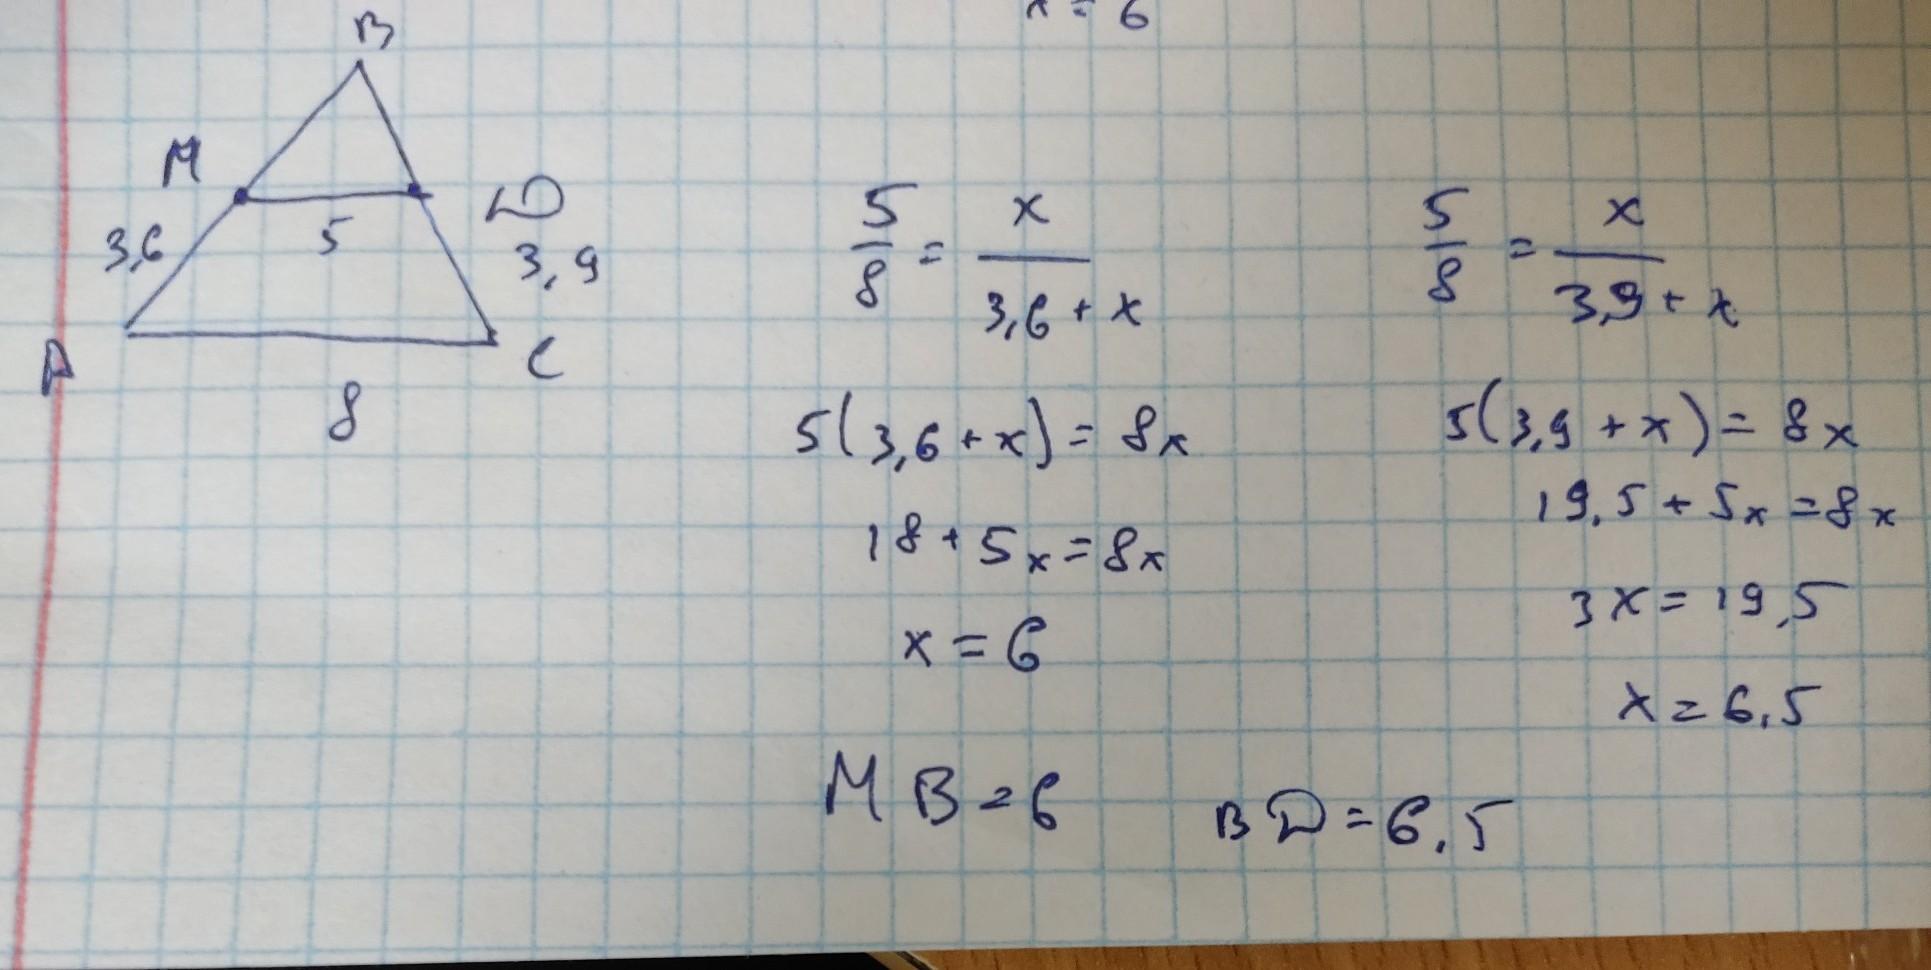 x = 6
B
M
D
3,6
5
3,9
A
C
8
5/8 = x/(3,6 + x)
5(3,6 + x) = 8x
18 + 5x = 8x
x = 6
MB = 6
5/8 = x/(3,9 + x)
5(3,9 + x) = 8x
19,5 + 5x = 8x
3x = 19,5
x = 6,5
BD = 6,5